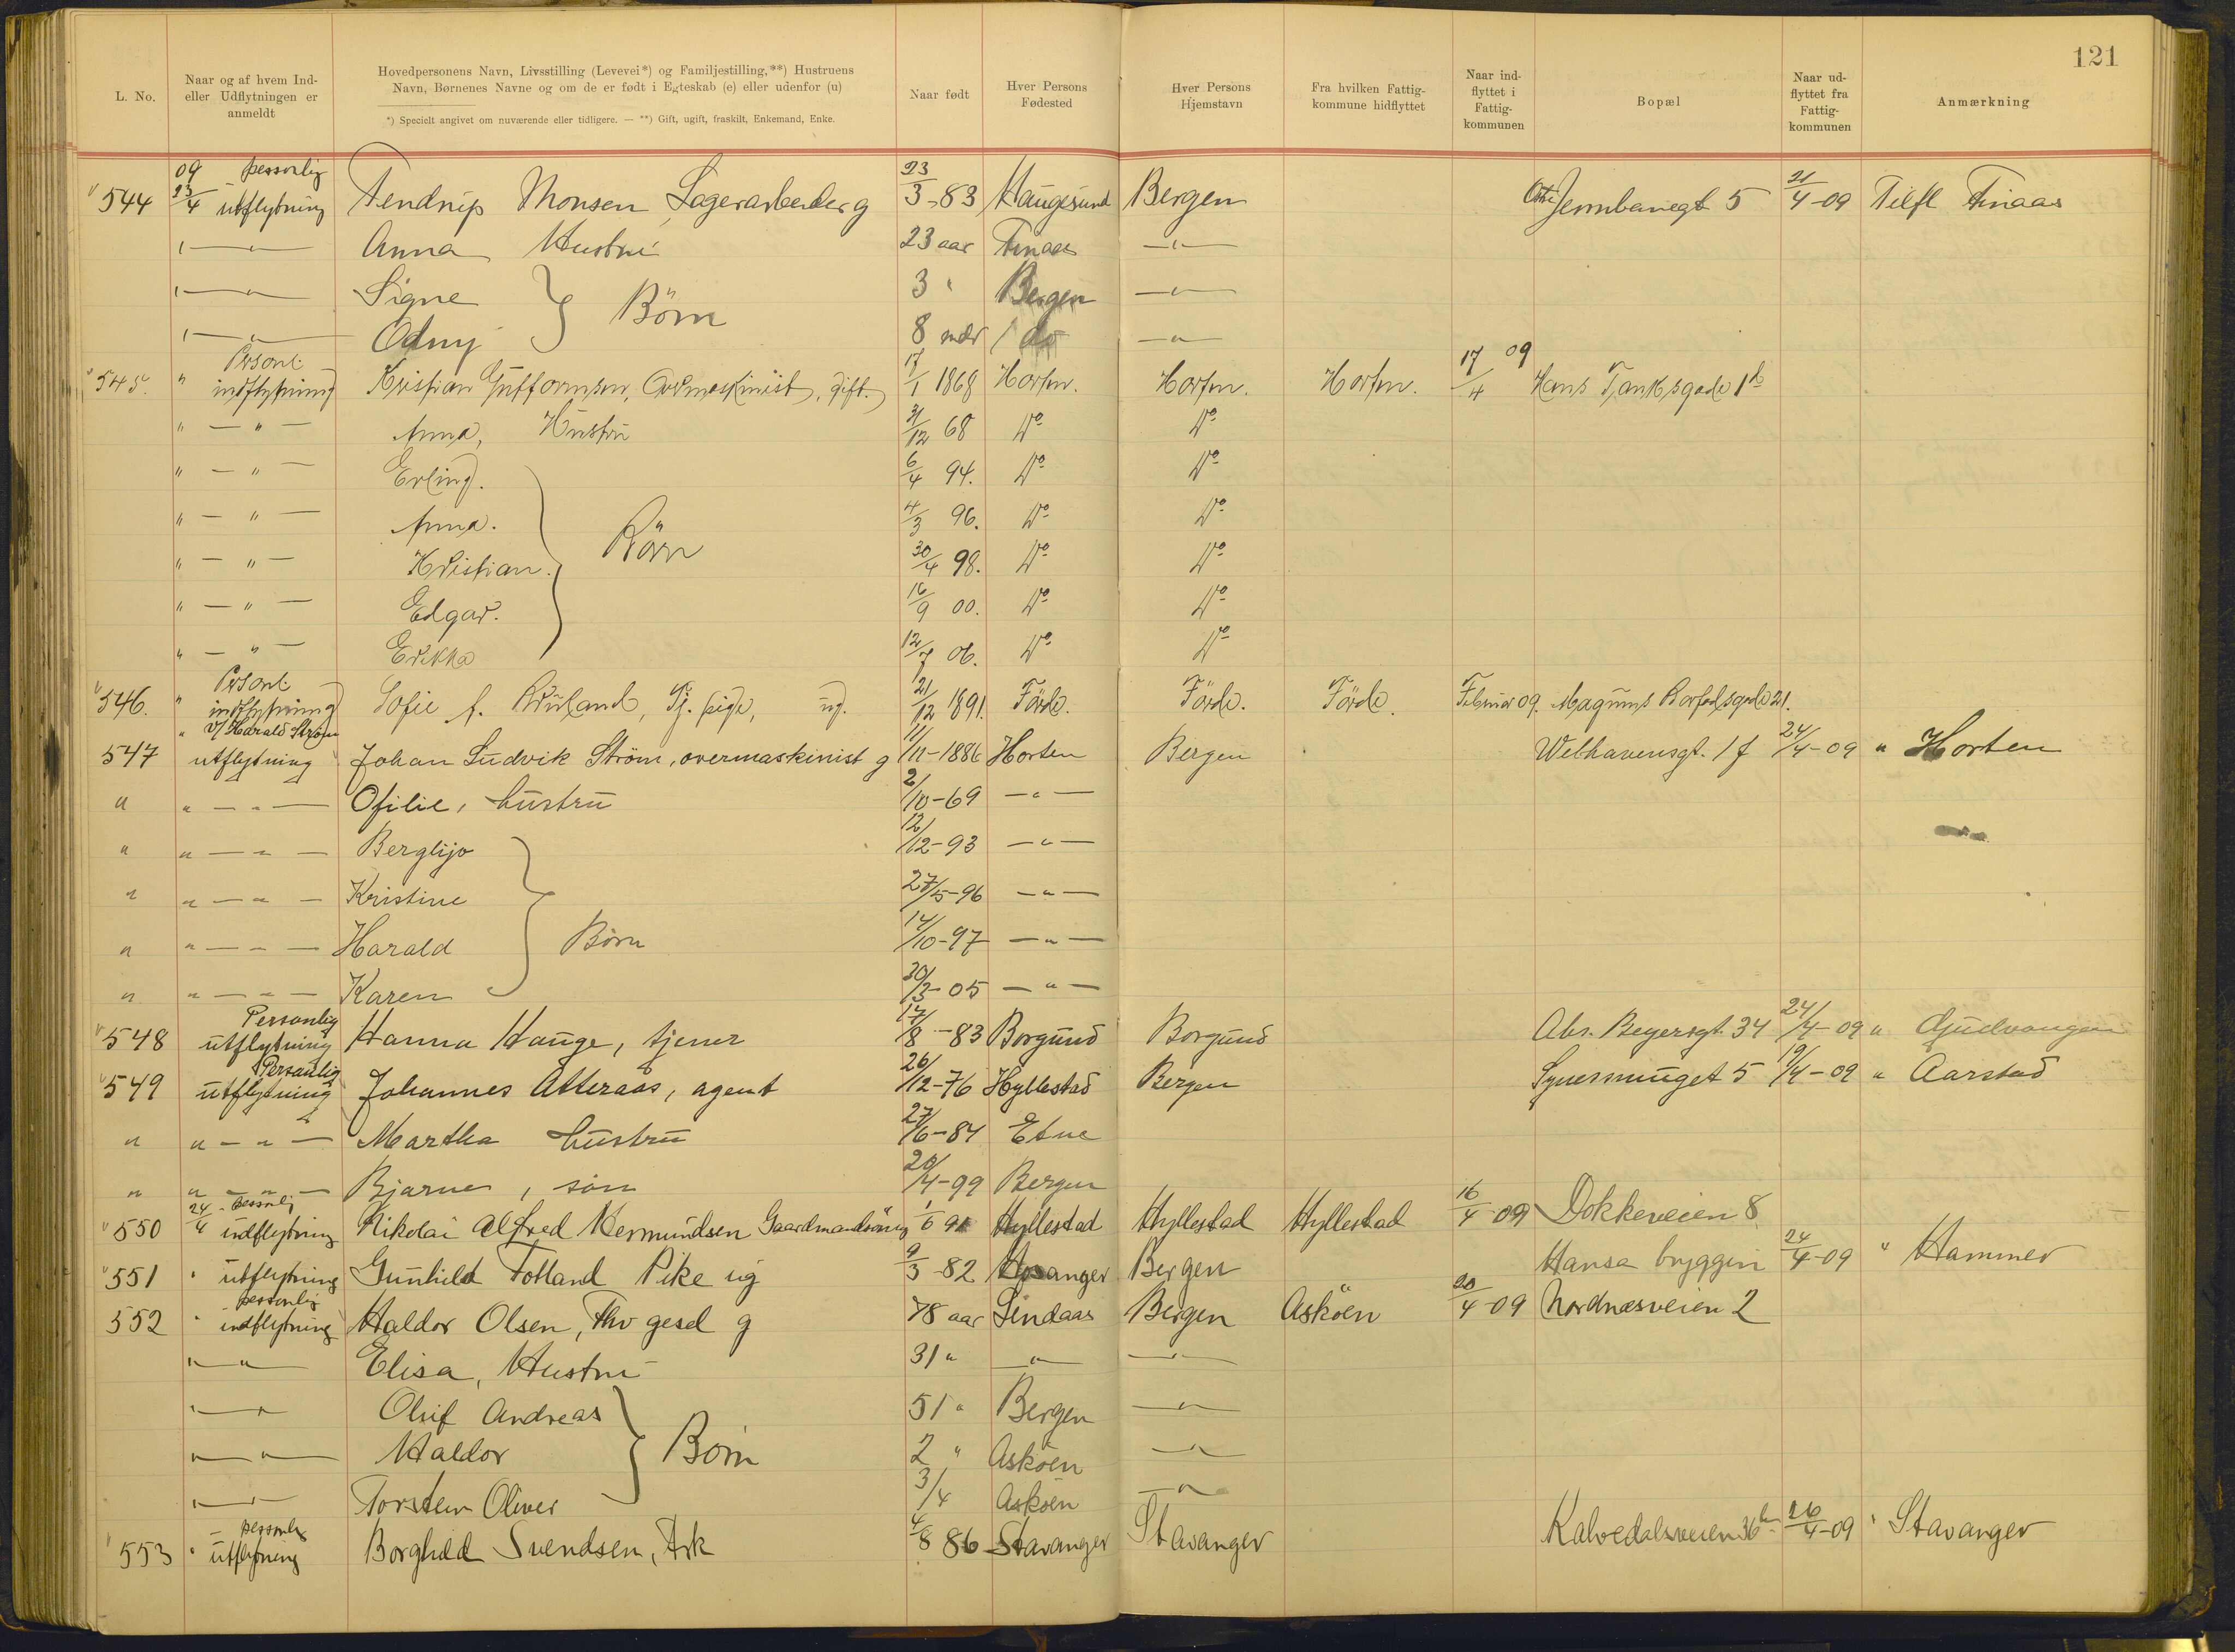 121
L. No.
Naar og af hvem Ind- eller Udflytningen er anmeldt
Hovedpersonens Navn, Livsstilling (Levevei*) og Familjestilling,**) Hustruens Navn, Børnenes Navne og om de er født i Egteskab (e) eller udenfor (u)
*) Specielt angivet om nuværende eller tidligere. — **) Gift, ugift, fraskilt, Enkemand, Enke.
Naar født
Hver Persons Fødested
Hver Persons Hjemstavn
Fra hvilken Fattig- kommune hidflyttet
Naar ind- flyttet i Fattig- kommunen
Bopæl
Naar ud- flyttet fra Fattig- kommunen
Anmærkning
09 personlig
544 23/4 utflytning Tendrup Monsen Lagerarbeider g 23/3-83 Haugesund Bergen Jernbanegt 5 21/4-09 Tilfl Finaas
" — " — Anna Hustru 23 aar Finaas — " —
" — " — Signe } Börn 3 " Bergen — " —
" — " — Odny 8 mdr do — " —
Personl.
545. " indflytning Kristian Guttormsen, Overmaskinist, gift. 17/1 1868 Horten. Horten. Horten. 17/4 09 Hans Tanksgade 1b
" — " — Anna, Hustru 31/12 68 Do Do
" — " — Erling. 6/4 94. Do Do
" — " — Anna. 4/3 96. Do Do
" — " — Kristian. } Börn 30/4 98. Do Do
" — " — Edgar. 16/9 00. Do Do
" — " — Erikka 12/7 06. Do Do
Personl.
546. " indflytning Sofie f. Bruland, Tj. pige, ug. 21/12 1891. Förde. Förde. Förde. Februar 09. Magnus Barfodsgade 21.
" v/ Harald Strøm
547 utflytning Johan Ludvik Strøm, overmaskinist g 11/11-1886 Horten Bergen Welhavensgt. 1 f 24/4-09 " Horten
" " — " — Ofilie, hustru 2/10-69 — " —
" " — " — Berglijo 12/12-93 — " —
" " — " — Kristine 27/5-96 — " —
" " — " — Harald } Börn 14/10-97 — " —
" " — " — Karen 30/3-05 — " —
Personlig
548 utflytning Hanna Hauge, tjener 17/8-83 Borgund Borgund Abs. Beyersgt. 34 24/4-09 " Gudvangen
Personlig
549 utflytning Johannes Atteraas, agent 26/12-76 Hyllestad Bergen 5 19/4-09 " Aarstad
" " — " — Martha hustru 27/6-84 Etne
" " — " — Bjarne, sön 20/4-99 Bergen
24/4 personlig
550 indflytning Nikolai Alfred Hermundsen Gaardmandsön ug 1/6 91 Hyllestad Hyllestad Hyllestad 16/4-09 Dokkeveien 8
551 " utflytning Gunhild Totland Pike ug 9/3-82 Hosanger Bergen Hansa bryggeri 24/4-09 " Hammer
personlig
552 " indflytning Haldor Olsen, gesel g 78 aar Lindaas Bergen Asköen 20/4-09 Nordnæsveien 2
" — " — Elisa, Hustru 31 " — " — — " —
" — " — Oluf Andreas 51 " Bergen — " —
" — " — Haldor } Börn 2 " Asköen — " —
" — " — Torstein Oliver 3/4 Asköen — " —
personlig
553 " utflytning Borghild Svendsen, Ark 4/8 86 Stavanger Stavanger Kalvedalsveien 36 26/4-09 " Stavanger